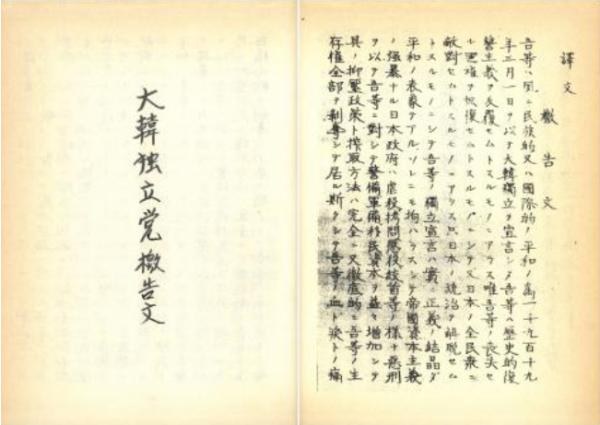 大韓独立党檄告文
譯文
檄告文
吾等ハ夙ニ民族的又ハ國際的ノ平和ノ為一千九百十九
年三月一日ヲ以テ大韓獨立ヲ宣言シタ吾等ハ歴史的復
讐主義ヲ反覆セムトスルモノニアラス唯吾等ノ喪失セ
ル國権ヲ恢復セムトスルモノニシテ又日本ノ全民衆ニ
敵對セムトスルモノニアラス只日本ノ統治ヲ解脱セム
トスルモノニシテ吾等ノ獨立宣言ハ實ニ正義ノ結晶ダ
平和ノ表象テアルソレニモ拘ハラスシテ帝國資本主義
ノ強暴ナル日本政府ハ虐殺拷問懲役絞首等ノ様ナ悪刑
ヲ以テ吾等ニ對シテ警備軍備移民資本ヲ益々増加シテ
其ノ抑壓政策ト搾取方法ハ完全ニ又徹底的ニ吾等ノ生
存権全部ヲ剥奪シテ居ル斯クシテ吾等ノ血ト涙トノ痛